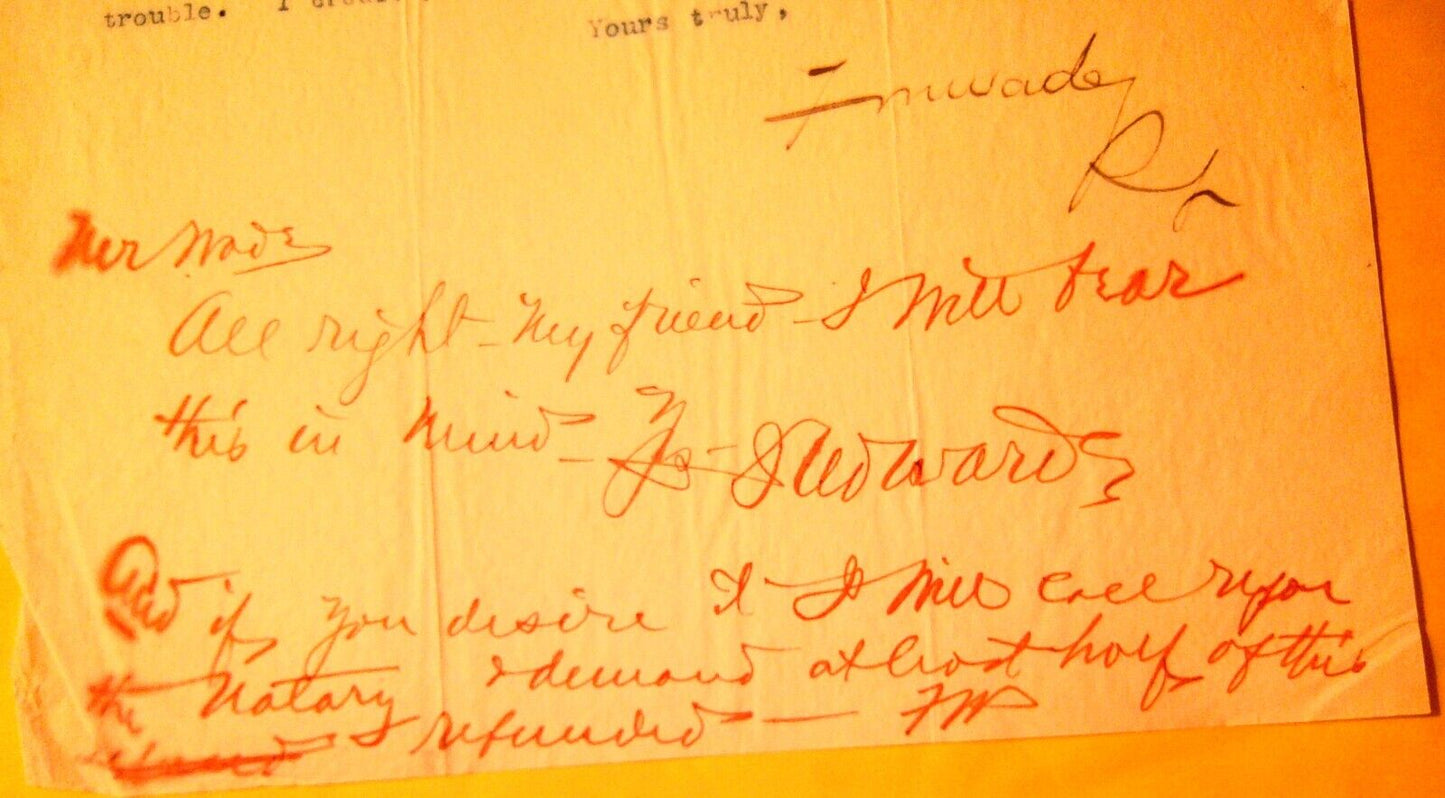 trouble. I
Yours truly,
Fmwade
Mr Wade
All right - My friend - I will bear
this in mind - Yrs - Edwards
And if you desire it I will call upon
the Notary & demand at least half of this
refunded —